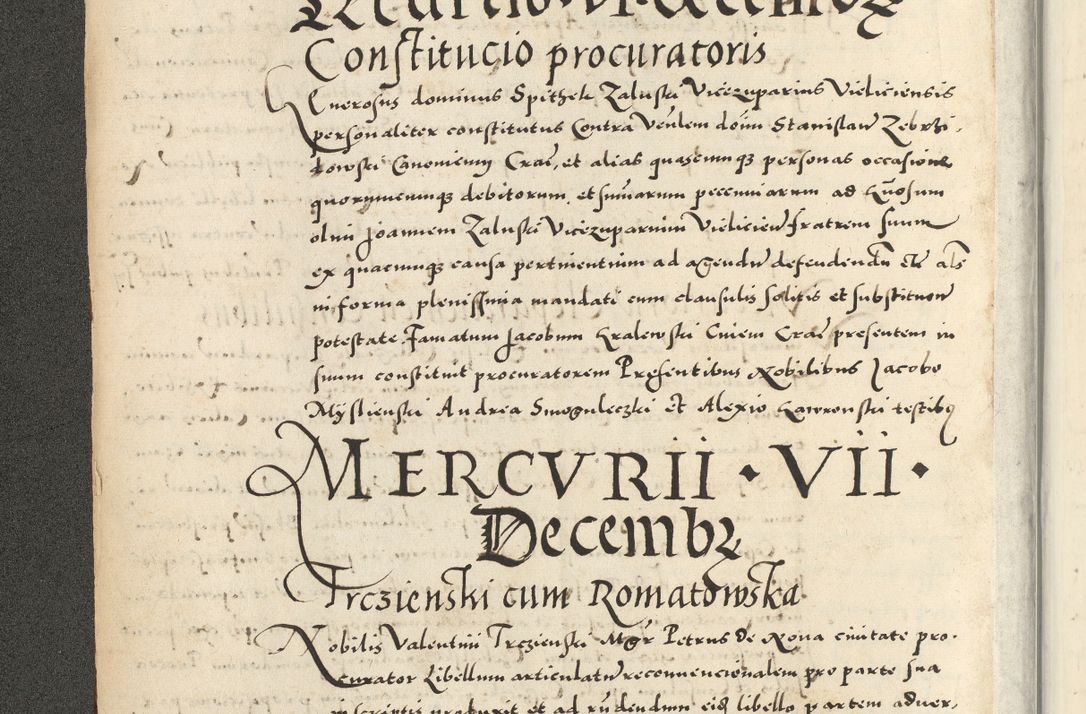 Constitucio procuratoris
Generosus dominus Spithek Zaluski Vicezuparius Vieliciensis
personaliter constitutus Contra Venlem doim Stanislaw Zebrzi-
dowski Canonicum Crac, et alias quascumqз personas occasione
quorumcumqз debitorum et sumarum pecuniarum ad
olim Joannem Zaluski Vicezuparium Vielicien fratrem suum
ex quacumqз causa pertinentium ad agendu defendendu etc als
in forma plenissima mandati cum clausulis solitis et substituen
potestate. Famatum Jacobum Kralewski Civem Crac presentem in
suum constituit procuratorem Presentibus Nobilibus Jacobo
Myslienski Andrea Smoguleczki et Alexio Gawronski testibq
MERCVRII · VII ·
Decembꝝ
Trczienski cum Romatowska
Nobilis Valentini Trczienski Mgr Petrus de Nova civitate pro-
curator Libellum articulatu reconvencionalem pro parte sua
in scriptis produxit et ad rn̄dendum eiq libello partem adver-